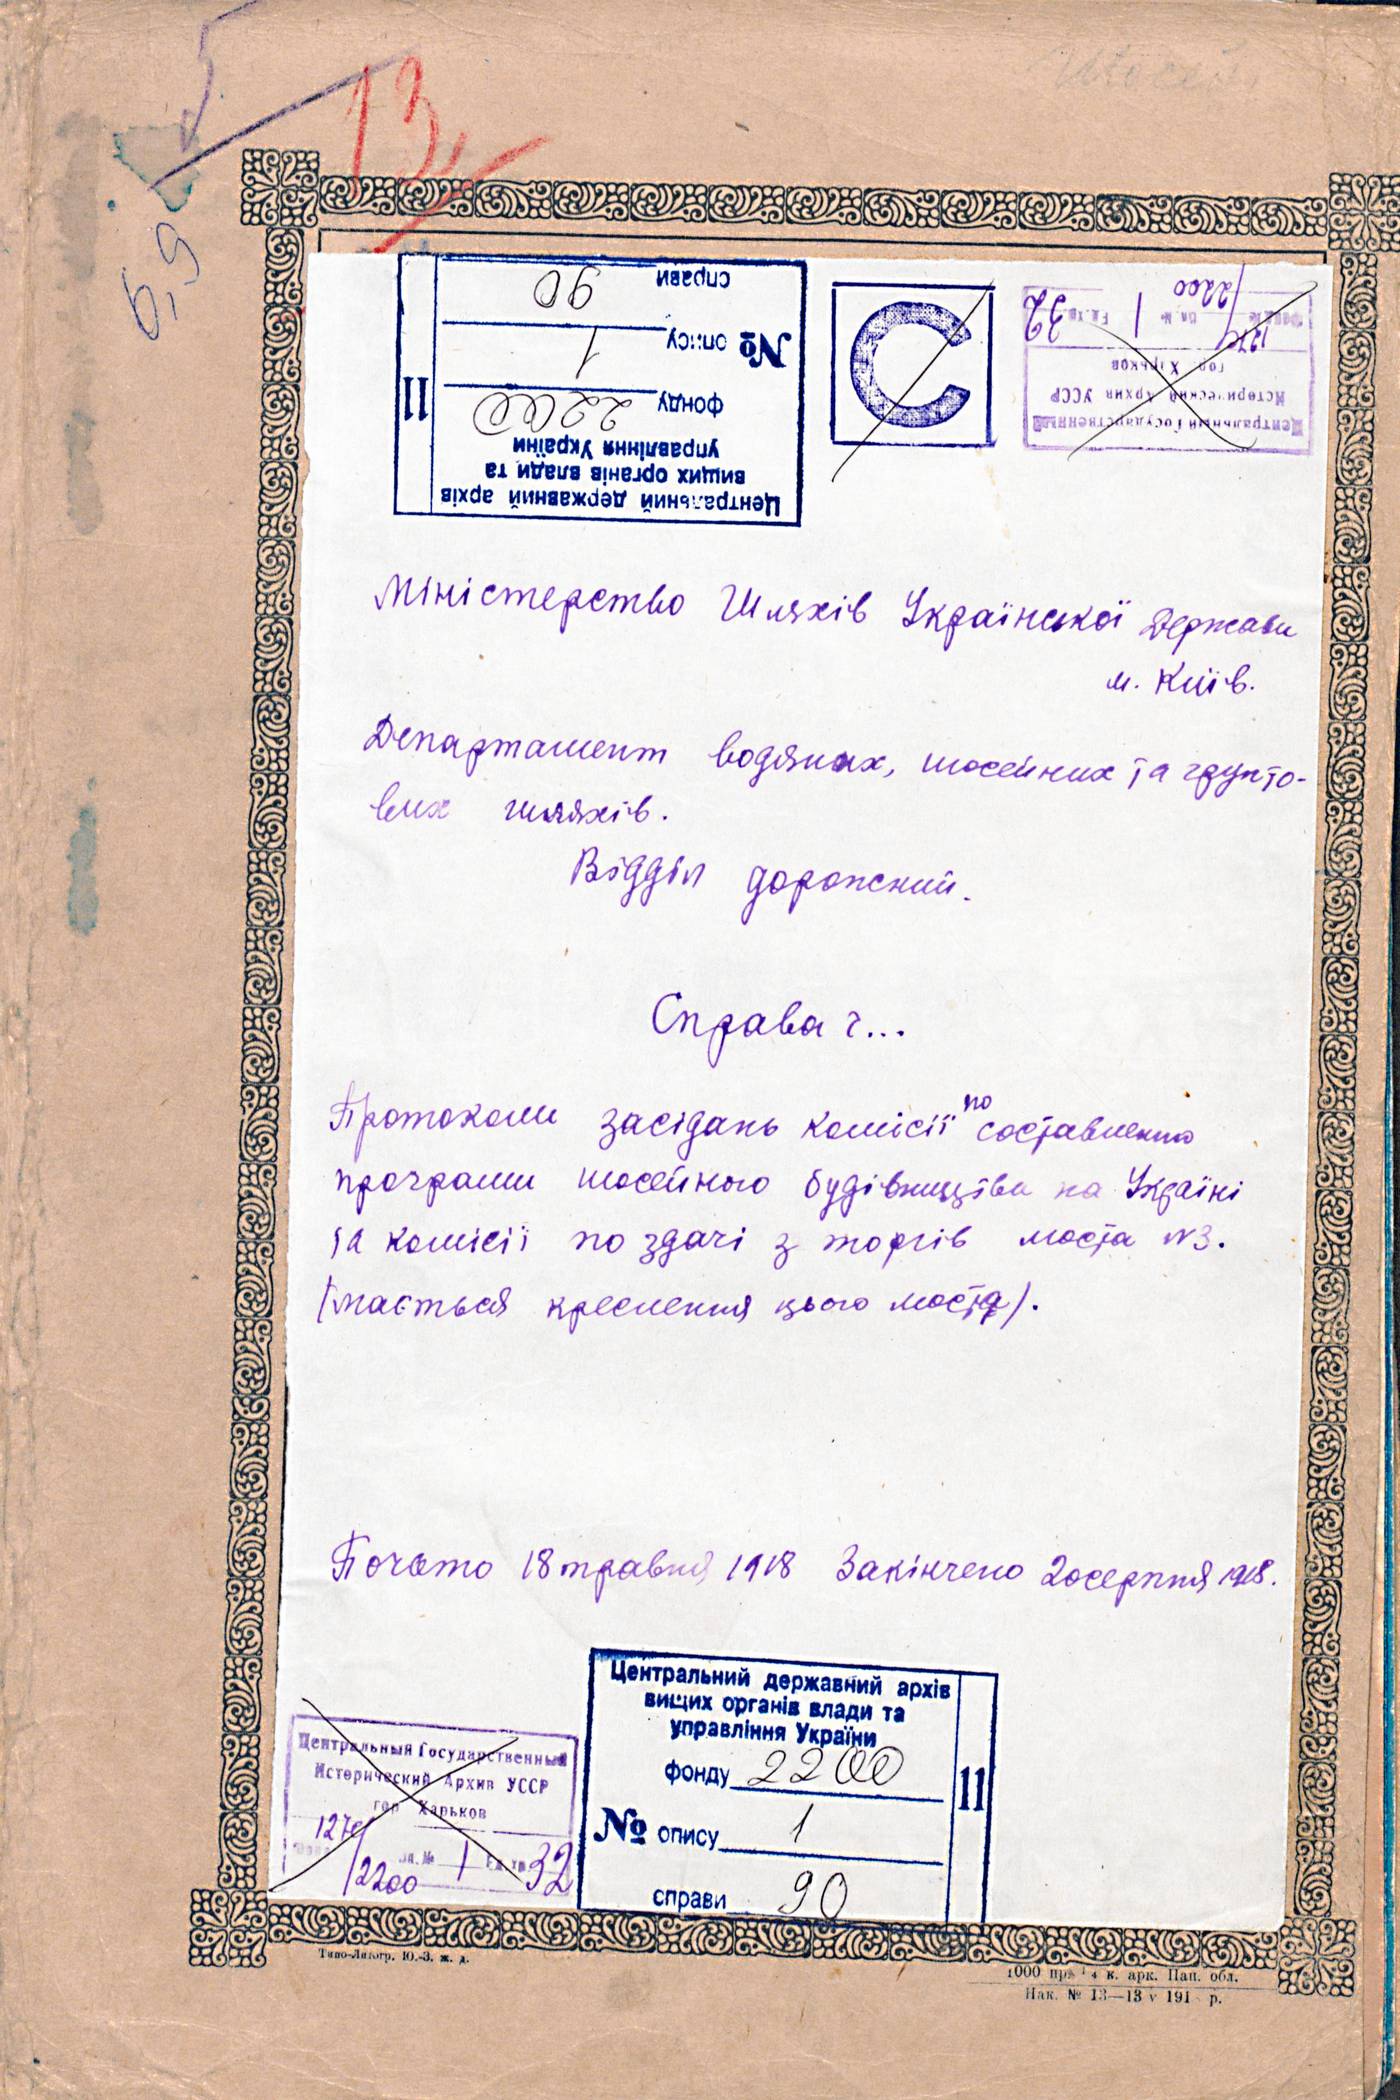 5
13
6,9
Центральний державний архів
вищих органів влади та
управління України
фонду 2200
№ опису 1
справи 90
11
С
Центральный Государственный
Исторический Архив УССР
гор Харьков
Фонд № 1274/2200 оп. № 1 Ед. хр. 32
Міністерство Шляхів Української Держави
м. Київ.
Департамент водяних, шосейних та грунто-
вих шляхів.
Відділ дорожний.
Справа ч...
Протоколи засідань комісії по составленню
програми шосейного будівництва на Україні
та комісії по здачі з торгів моста N3.
(мається креслення цього моста).
Почато 18 травня 1918 Закінчено 20 серпня 1918.
Центральный Государственный
Исторический Архив УССР
гор Харьков
1274/2200 оп. № 1 Ед. хр 32
Центральний державний архів
вищих органів влади та
управління України
фонду 2200
№ опису 1
справи 90
11
Типо-Литогр. Ю.-З. ж. д.
1000 пр. к. арк. Пап. обл.
Нак. № 13—13 V 191 р.